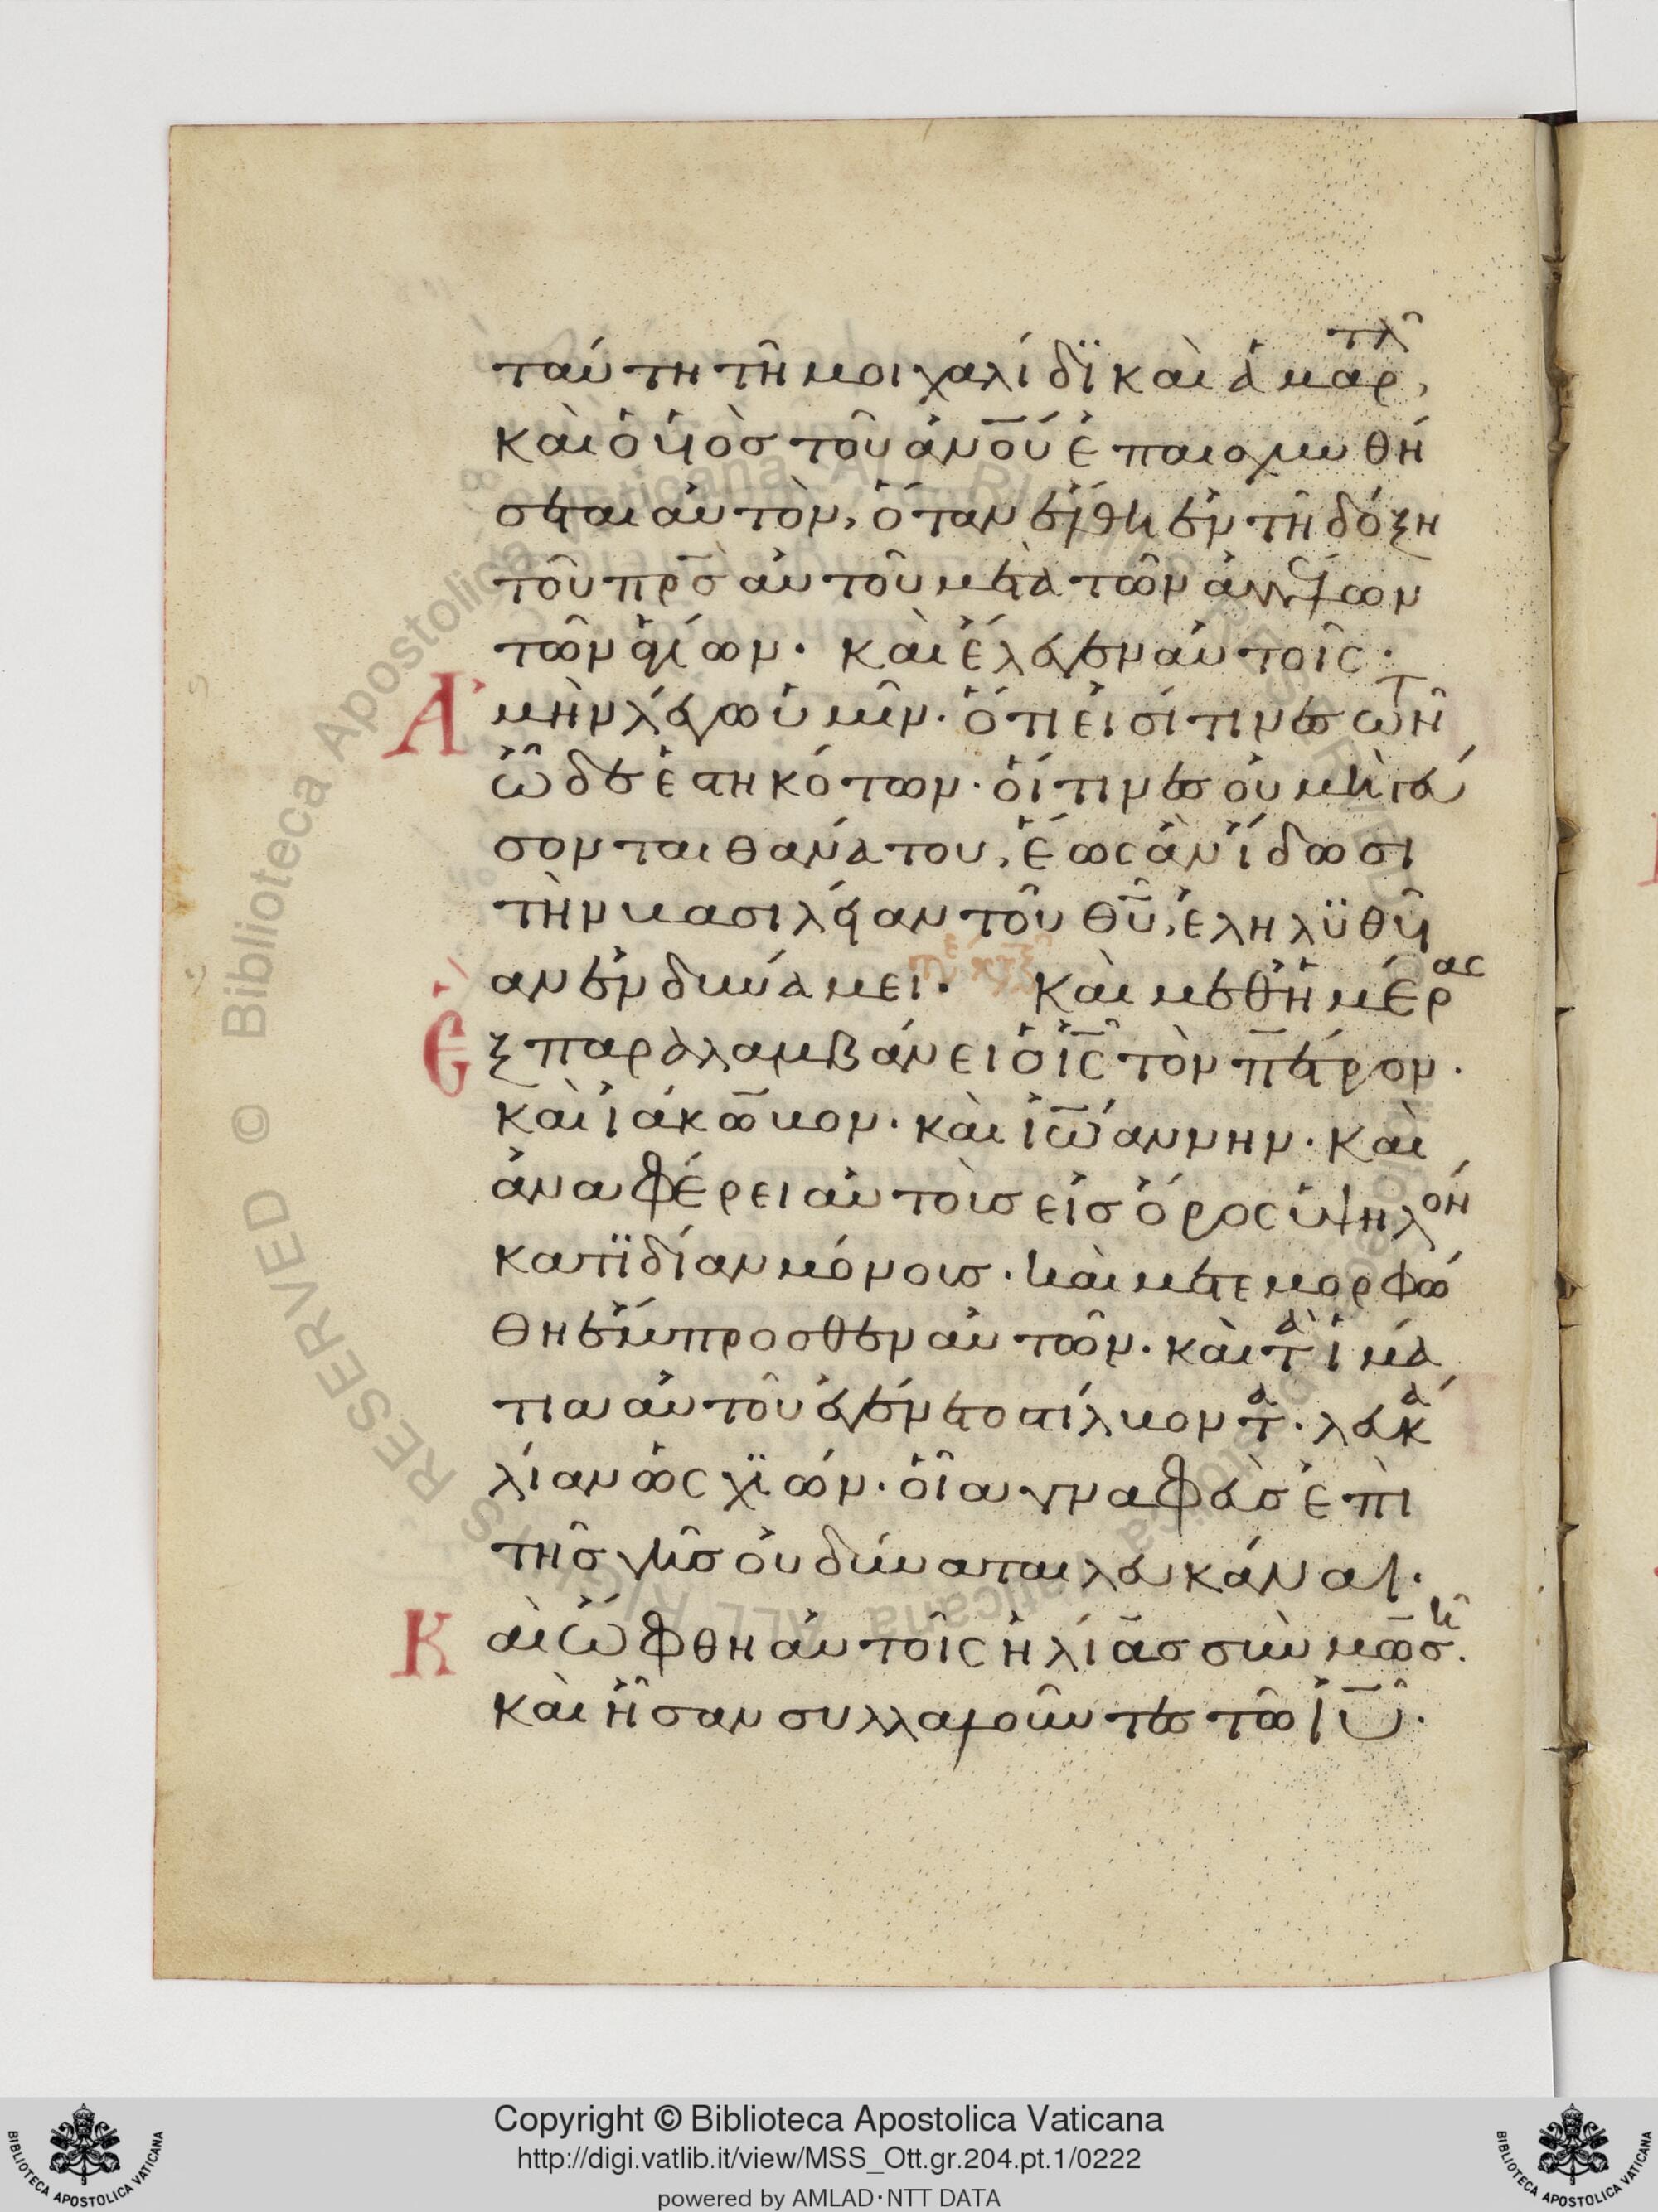 ταύτη τῆ μοιχαλίδϊ καὶ ἁμαρτλῶ,
καὶ ὁ υἱὸσ τοῦ ἀν̅ου ἐπαισχυνθή
σεται αὐτὸν, ὅταν ἔλθη ἐν τῆ δόξη
τοῦ πρ̅σ αὐτοῦ μετὰ τῶν ἀγγέλων
τῶν ἁγίων. καὶ ἔλεγεν αὐτοῖς.
Ἀμὴν λέγω ὑμῖν. ὅτι εἰσί τινεσ τῶν
ὧδε ἑστηκότων. οἵτινεσ οὐ μὴ γεύ
σονται θανάτου, ἕως ἂν ἴδωσι
τὴν βασιλείαν τοῦ θυ̅, ἐληλϋθυῖ
αν ἐν δυνάμει. Καὶ μεθ ἡμέρας
Ἓξ παραλαμβάνει ὁ ις̅ τὸν πέτρον.
καὶ ἰάκωβον. καὶ ἰωάννην. καὶ
ἀναφέρει αὐτοὺσ εἰσ ὄρος ὑψηλὸν
κατϊδίαν μόνουσ. καὶ μετεμορφώ
θη ἔμπροσθεν αὐτῶν. καὶ τὰ ἱμά
τια αὐτοῦ ἐγένετο στίλβοντα. λευκὰ
λίαν ὡς χϊών. οἷα γναφεὺσ ἐπὶ
τῆσ γῆσ οὐ δύναται λευκάναι.
Καὶ ὤφθη αὐτοῖς ἠλίασ σὺν μωσῆ.
καὶ ἦσαν συλλαλοῦντεσ τῶ ιυ̅.
Copyright © Biblioteca Apostolica Vaticana
http://digi.vatlib.it/view/MSS_Ott.gr.204.pt.1/0222
powered by AMLAD·NTT DATA
BIBLIOTECA APOSTOLICA VATICANA
BIBLIOTECA APOSTOLICA VATICANA